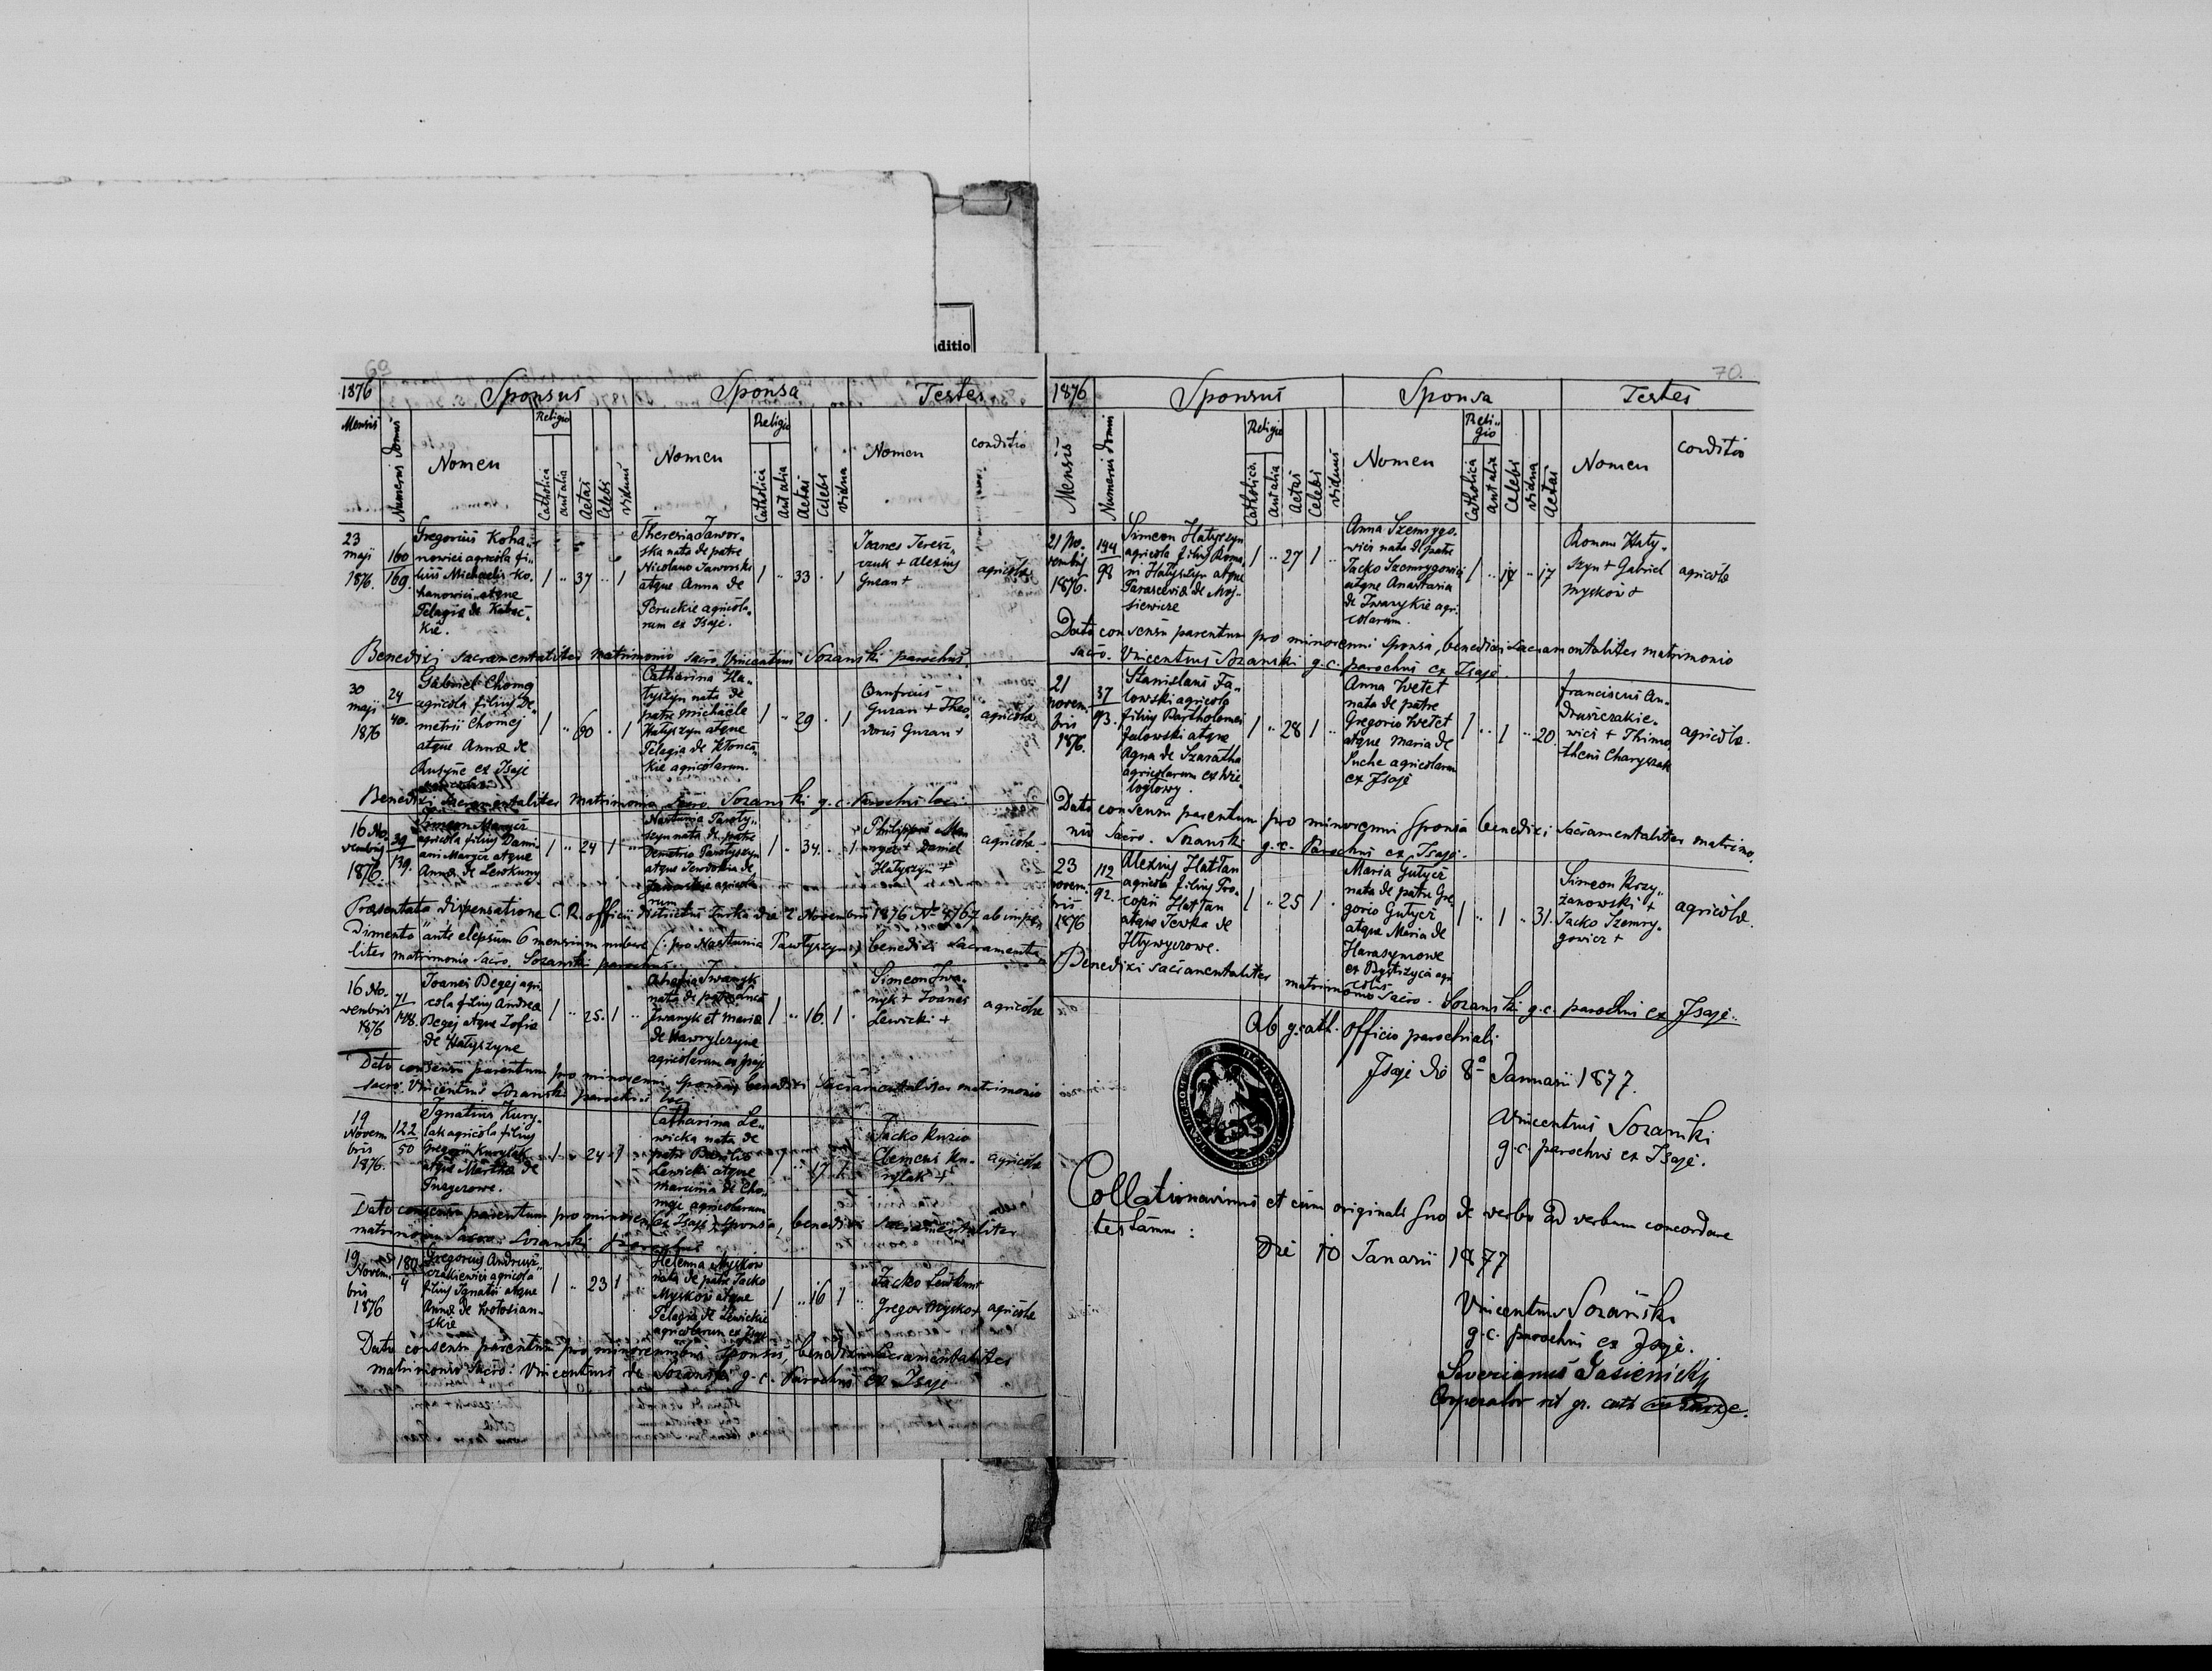 ditio
69
1876 Sponsus Sponsa Testes
Mensis Numerus domus Nomen Religio Catholica aut alia Aetas Celebs viduus Nomen Religio Catholica aut alia Aetas Celebs vidua Nomen conditio
23 maji 1876. 160 169.
Gregorius Koha-
nowicz agricola fi-
lius Michaelis Ko-
hanowicz atque
Pelagia de
1 " 37 " 1
Theresia Jawor-
ska nata de patre
Nicolauo Jaworski
atque Anna de
Peruckie agricola-
rum ex Isaje.
1 " 33 . 1
Joanes Teresz-
czuk + Alexius
Guran +
agricola
Benedixi sacramentalites matrimonio sacro Vincentius Sozanski parochus.
30 maji 1876 24 40.
Gabriel Chomej
agricola filius De-
metrii Chomej
atque Anna de
Rusyne ex Isaje
1 " 60 . 1
Catharina Ha-
tyszyn nata de
patre Michaele
Hatyszyn atque
Pelagia de
kie agricolarum.
1 " 29 . 1
Onufrius
Guran + Theo-
dorus Guran +
agricola
Benedixi sacramentalites matrimonio sacro Sozanski g. c. Parochus loci
16 No-
vembris 1876. 39 139.
Simeon Marycz
agricola filius Dami-
ani Marycz atque
Anna de Lewkuny
1 " 24 1 "
Nastunia Pawty-
szyn nata de patre
Demetrio Pawtyszyn
atque Jewdokia de
Jaworskie agricola-
rum
1 " 34. " 1
Philippus
+ Daniel
Hatyszyn +
agricola
Praesentata dispensatione C. R. officii districtus Turka die 2 Novembris 1876 No 4767 ab impe-
dimento "ante elepsum 6 mensium nubere (: pro Nastunia Pawtyszyn:) benedixi sacramenta-
lites matrimonio sacro. Sozanski parochus.
16 No-
vembris 1876 71 148.
Joanes Begej agri-
cola filius Andrea
Begej atque Zofia
de Hatyszyne
1 " 25. 1 "
Iwanyk
nata de patre
Iwanyk et Maria
de Hawrylczyne
agricolarum ex Isaje
1 " 16. 1 "
Simeon Iwa-
nyk + Joanes
Lewicki +
agricola
Dato consensu parentum pro minorenni sponsa, benedixi sacramentalites matrimonio
sacro. Vincentius Sozanski parochus loci
19 Novem-
bris 1876. 122 50
Ignatius Kury-
lak agricola filius
Gregorii Kurylak
atque Martha de
1 " 24 1
Catharina Le-
wicka nata de
patre Basilio
Lewicki atque
Marina de Cho-
meje agricolarum
ex Isaje
1 " 17 1
Jacko Ruzio
Clemens Ku-
rylak +
agricola
Dato consensu parentum pro minorenni sponsa, benedixi sacramentaliter
matrimonio sacro. Sozanski parochus
19 Novem-
bris 1876 180 4
Gregorius Andrusz-
czakiewicz agricola
filius Ignatii atque
Anna de Wotosian-
skie
1 " 23 1
Helenna Myskow
nata de patre Jacko
Myskow atque
Pelagia de Lewickie
agricolarum ex Isaje
1 " 16 1 "
Jacko Lewkun +
Gregor Myskow
agricola
Dato consensu parentum pro minorennibus sponsis, benedixi sacramentalites
matrimonio sacro: Vincentius de Sozanski g. c. Parochus ex Isaje
70.
1876 Sponsus Sponsa Testes
Menses Numerus domus Religio Catholica aut alia Aetas Celebs viduus Nomen Religio Catholica aut alia Celebs vidua Aetas Nomen conditio
21 No-
vembris 1876. 144 98
Simeon Hatyszyn
agricola filius Roma-
ni Hatyszyn atque
Parascevia de Moj-
siewicze
1 " 27 1 "
Anna Szemrygo-
wicz nata de patre
Jacko Szemrygowicz
atque Anastasia
de Iwanykie agri-
colarum.
1 " " 17
Roman Haty-
szyn + Gabriel
Myskow +
agricola
Dato consensu parentum pro minorenni sponsa, benedixi sacramentalites matrimonio
sacro. Vincentius Sozanski g. c. parochus ex Isaje.
21 novem-
bris 1876. 37 93.
Stanislaus Fa-
lowski agricola
filius Bartholomei
Falowski atque
Agna de Szaratha
agricolarum ex Wie-
loglowy.
1 " 28 1 "
Anna Wetet
nata de patre
Gregorio Wetet
atque Maria de
Puche agricolarum
ex Isaje
1 " 1 " 20.
Franciscus An-
druszczakie-
wicz + Thimo-
theus Charyszak
agricola.
Dato consensu parentum pro minorenni sponsa benedixi sacramentalites matrimo-
nio sacro. Sozanski g. c. Parochus ex Isaje.
23 novem-
bris 1876 112 92.
Alexius Hattan
agricola filius Pro-
copii Hattan
atque Jewka de
Htywyczowe.
1 " 25 1 .
Maria Gutycz
nata de patre Gre-
gorio Gutycz
atque Maria de
Harasymowe
ex Bystrzyca agri-
colis
1 " 1 " 31.
Simeon Krzy-
zanowski +
Jacko Szemry-
gowicz +
agricola.
Benedixi sacramentalites matrimonio sacro. Sozanski g. c. parochus ex Isaje.
Ab g. cath. officio parochiali
Isaje die 8a Januarii 1877.
Vincentius Sozanski
g. c. parochus ex Isaje.
Collationavimus et cum originali suo de verbo ad verbum concordare
testamur:
Die 10 Januarii 1877
Vincentius Sozański
g. c. parochus ex Isaje.
Severianus Jasienickyj
Cooperator rit gr. cath